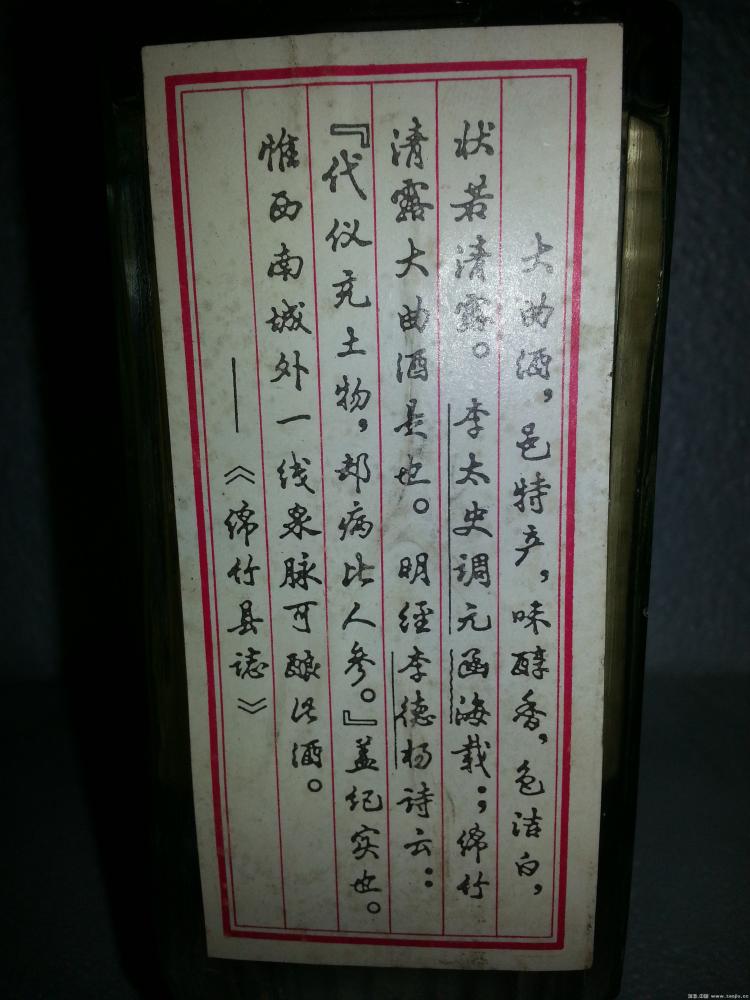 大曲酒，邑特产，味醇香，色洁白，
状若清露。李太史调元函海载；绵竹
清露大曲酒是也。明经李德扬诗云：
『代仪充土物，却病比人参。』盖纪实也。
惟西南城外一线泉脉可酿此酒。
——《绵竹县志》